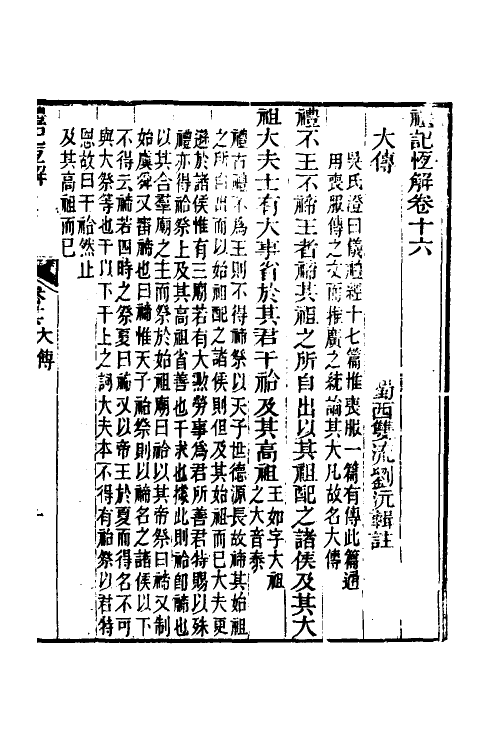 禮記恆解卷十六
蜀西雙流劉沅輯註
大傳
吳氏澄曰儀禮經十七篇惟喪服一篇有傳此篇通
用喪服傳之文而推廣之統論其大凡故名大傳
禮不王不禘王者禘其祖之所自出以其祖配之諸侯及其大
祖大夫士有大事省於其君干祫及其高祖王如字大祖
之大音泰
禮古禮不爲王則不得禘祭以天子世德源長故禘其始祖
之所自出而以始祖配之諸侯則但及其大祖而已大夫更
遜於諸侯惟有三廟若有大勲勞事爲君所善君特賜以殊
禮亦得祫祭上及其高祖省善也干求也據此則祫卽禘也
以其合羣廟之主而祭於始祖廟曰祫以其帝祭曰禘又制
始虞舜又審禘也曰禘惟天子祫祭則以禘名之諸侯以下
不得云禘若四時之祭夏曰禘又以帝王於夏而得名不可
與大祭等也干以下干上之詞大夫本不得有祫祭以君特
恩故曰干祫然止
及其高祖而已
禮記恆解
卷十六大傳
一